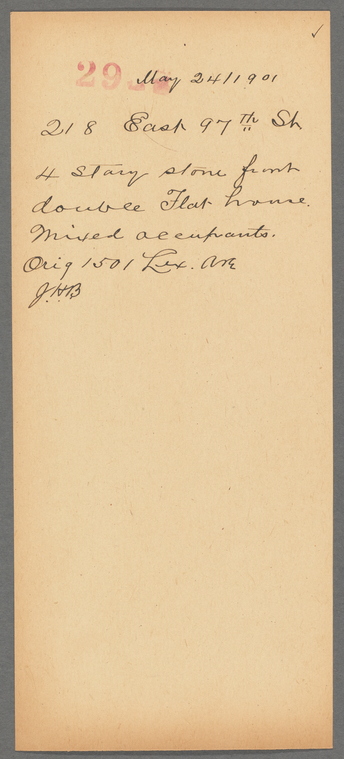 ✓
29
May 24/1901
218 East 97th St
4 Story stone front
double Flat house.
Mixed occupants.
Orig 1501 Lex. Ave
J.H.B